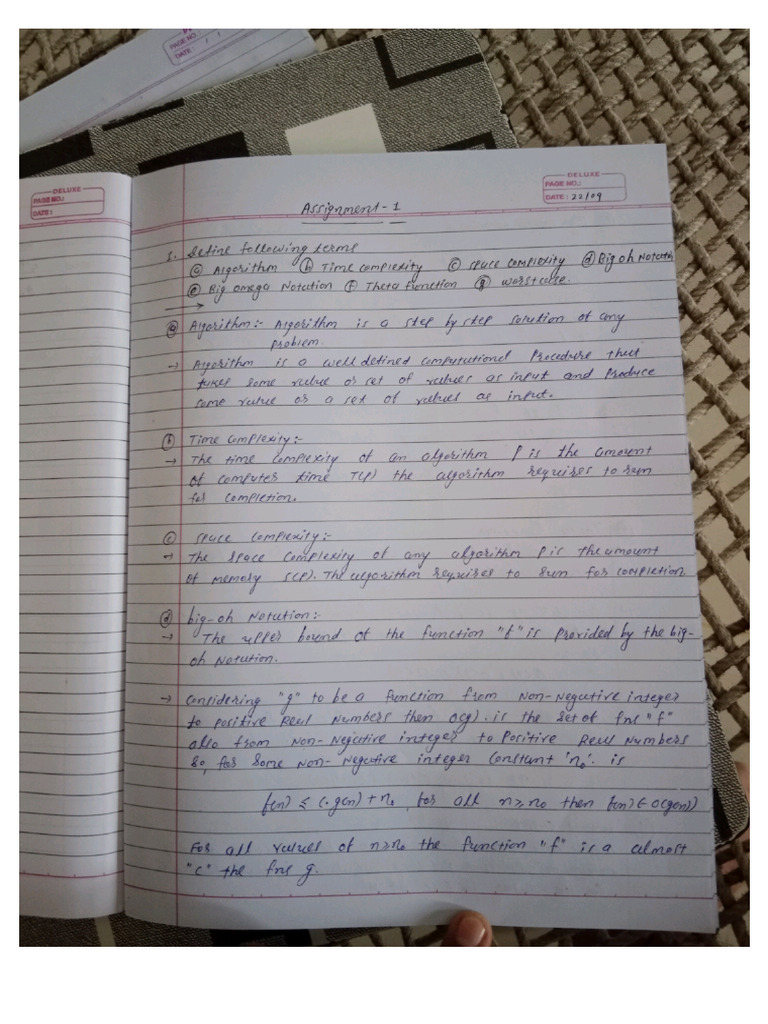 PAGE NO.
DATE:
DELUXE
PAGE NO.:
DATE:
DELUXE
PAGE NO.:
DATE: 22/09
Assignment - 1
1. Define following terms
(a) Algorithm (b) Time complexity (c) Space complexity (d) Big oh Notation
(e) Big omega Notation (f) Theta Function (g) worst case.
→
(a) Algorithm:- Algorithm is a step by step solution of any
problem.
→ Algorithm is a well defined computational Procedure that
takes some value or set of values as input and Produce
some value or a set of values as input.
(b) Time Complexity:-
→ The time complexity of an algorithm P is the amount
of computer time T(P) the algorithm requires to run
for completion.
(c) Space Complexity:-
→ The space complexity of any algorithm P is the amount
of memory S(P). The algorithm requires to run for completion.
(d) big-oh Notation:-
→ The upper bound of the function "f" is Provided by the big-
oh Notation.
→ Considering "g" to be a function from Non-Negative integer
to Positive Real Numbers then O(g). is the set of fns "f"
also from Non-Negative integer to Positive Real Numbers
So, for some Non-Negative integer Constant 'n₀'. is
f(n) ≤ C·g(n) + n₀, for all n ≥ n₀ then f(n) ∈ O(g(n))
For all values of n ≥ n₀ the function "f" is a almost
"c" the fns g.